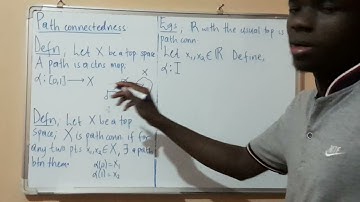 Path connectedness
Defn, Let X be a top space
A path is a ctns map:
α: [0,1] → X
X
Defn, Let X be a top
Space, X is path conn. if for
any two pts x₁, x₂ ∈ X, ∃ a path
btn them.
α(0) = x₁
α(1) = x₂
Egs, ℝ with the usual top is
path conn.
Let x₁, x₂ ∈ ℝ Define,
α: I